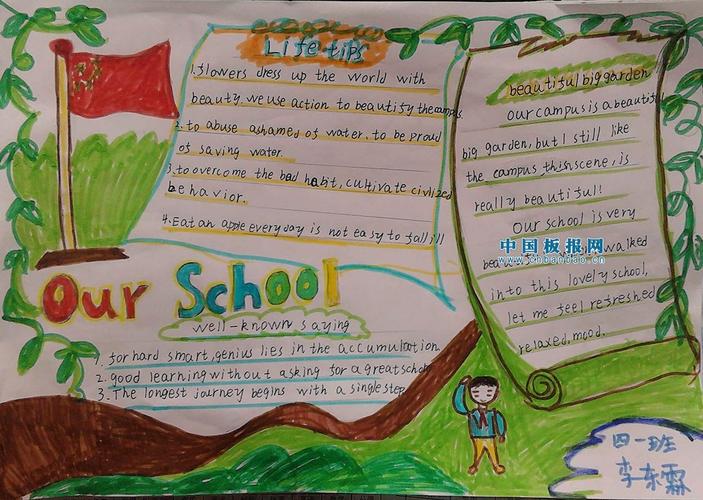 Life tips
1. flowers dress up the world with
beauty. we use action to beautify the campus.
2. to abuse ashamed of water. to be proud
of saving water.
3. to overcome the bad habit, cultivate civilized
behavior.
4. Eat an apple everyday is not easy to fall ill
beautiful big garden
our campus is a beautiful
big garden, but I still like
the campus this scene, is
really beautiful!
Our school is very
walked
into this lovely school,
let me feel refreshed
relaxed mood.
中国板报网
www.zhbanbao.cn
Our School
well-known saying
1. for hard smart, genius lies in the accumulation
2. good learning without asking for a great scho
3. The longest journey begins with a single step
四一班
李东霖